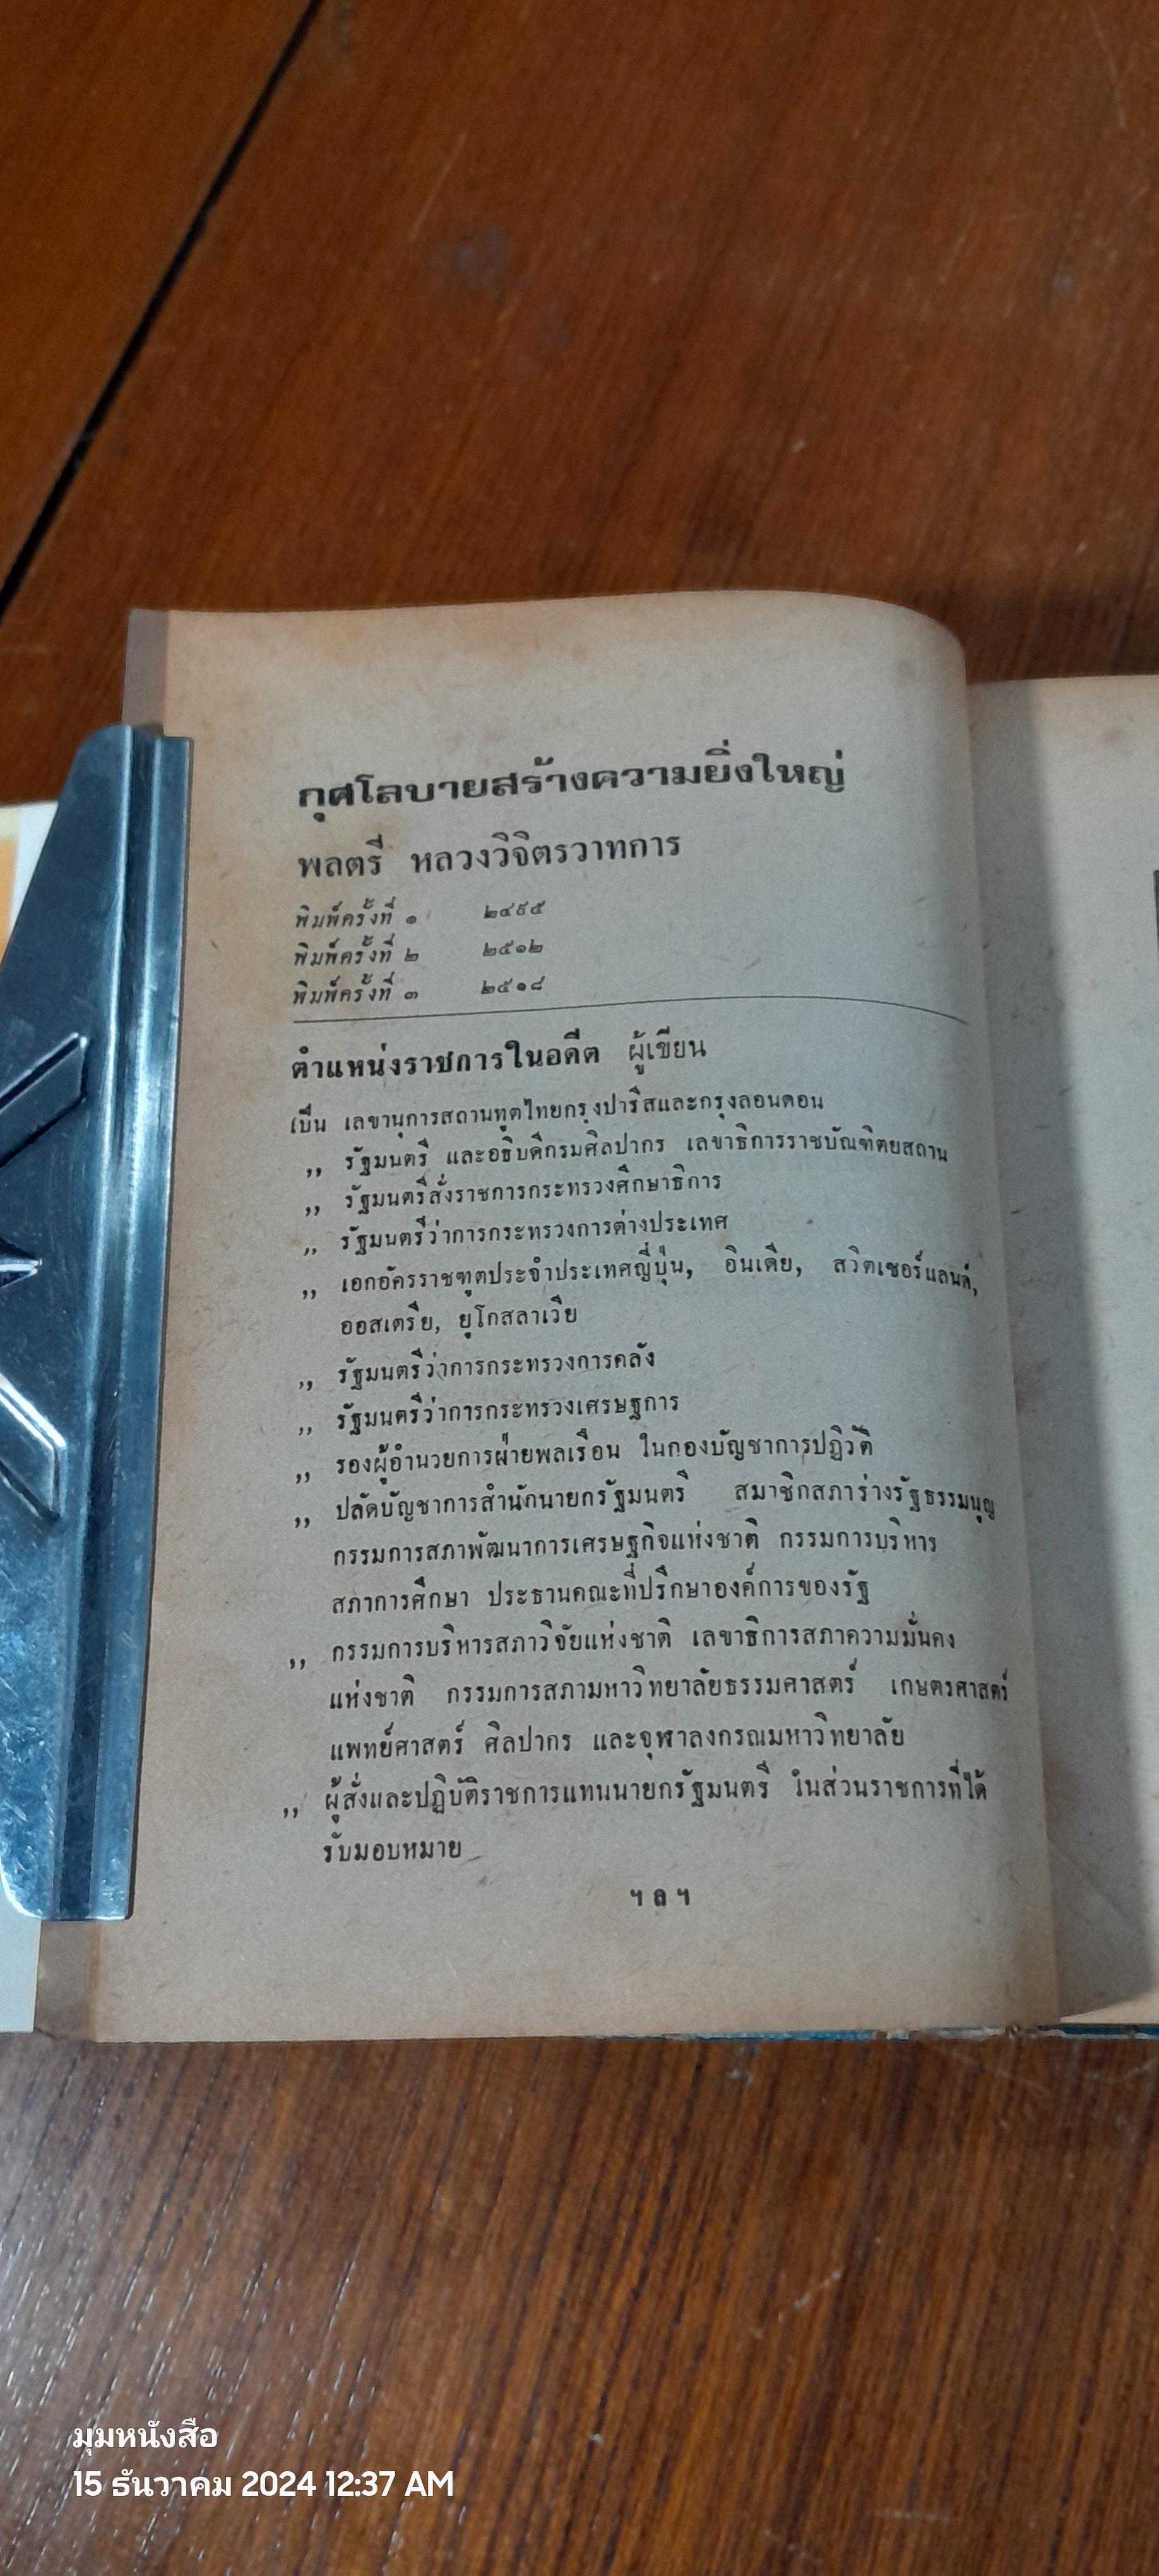 กุศโลบายสร้างความยิ่งใหญ่
พลตรี หลวงวิจิตรวาทการ
พิมพ์ครั้งที่ ๑ ๒๔๙๕
พิมพ์ครั้งที่ ๒ ๒๕๑๒
พิมพ์ครั้งที่ ๓ ๒๕๑๘
ตำแหน่งราชการในอดีต ผู้เขียน
เป็น เลขานุการสถานทูตไทยกรุงปารีสและกรุงลอนดอน
,, รัฐมนตรี และอธิบดีกรมศิลปากร เลขาธิการราชบัณฑิตยสถาน
,, รัฐมนตรีสั่งราชการกระทรวงศึกษาธิการ
,, รัฐมนตรีว่าการกระทรวงการต่างประเทศ
,, เอกอัครราชฑูตประจำประเทศญี่ปุ่น, อินเดีย, สวิตเซอร์แลนด์,
ออสเตรีย, ยูโกสลาเวีย
,, รัฐมนตรีว่าการกระทรวงการคลัง
,, รัฐมนตรีว่าการกระทรวงเศรษฐการ
,, รองผู้อำนวยการฝ่ายพลเรือน ในกองบัญชาการปฏิวัติ
,, ปลัดบัญชาการสำนักนายกรัฐมนตรี สมาชิกสภาร่างรัฐธรรมนูญ
กรรมการสภาพัฒนาการเศรษฐกิจแห่งชาติ กรรมการบริหาร
สภาการศึกษา ประธานคณะที่ปรึกษาองค์การของรัฐ
,, กรรมการบริหารสภาวิจัยแห่งชาติ เลขาธิการสภาความมั่นคง
แห่งชาติ กรรมการสภามหาวิทยาลัยธรรมศาสตร์ เกษตรศาสตร์
แพทย์ศาสตร์ ศิลปากร และจุฬาลงกรณมหาวิทยาลัย
,, ผู้สั่งและปฏิบัติราชการแทนนายกรัฐมนตรี ในส่วนราชการที่ได้
รับมอบหมาย
ฯ ล ฯ
มุมหนังสือ
15 ธันวาคม 2024 12:37 AM